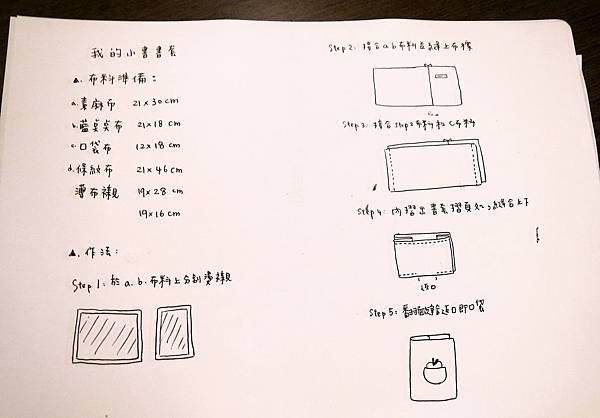 我的小書書套
▲. 布料準備：
a. 素麻布 21×30cm
b. 藍桌桌布 21×18cm
c. 口袋布 12×18cm
d. 條紋布 21×46cm
薄布襯 19×28cm
19×16cm
▲. 作法：
Step 1: 於a.b.布料上分別燙襯
Step 2: 接合a b布料並縫上布標
Step 3: 接合step2布料和C布料
Step 4: 內摺出書套摺頁處,縫合上下
返口
Step 5: 返口即口袋